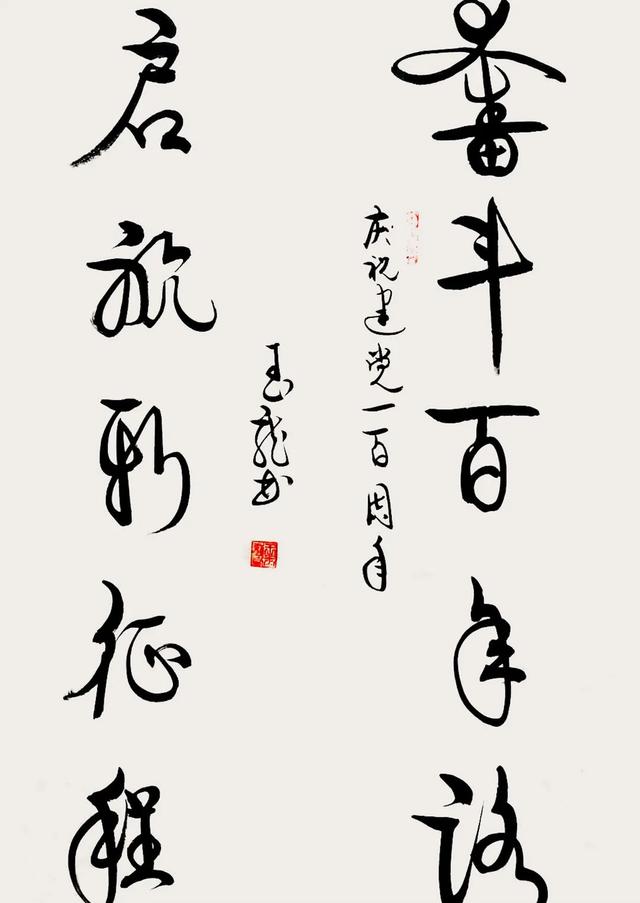 奮斗百年路
庆祝建党一百周年
启航新征程
玉龙书